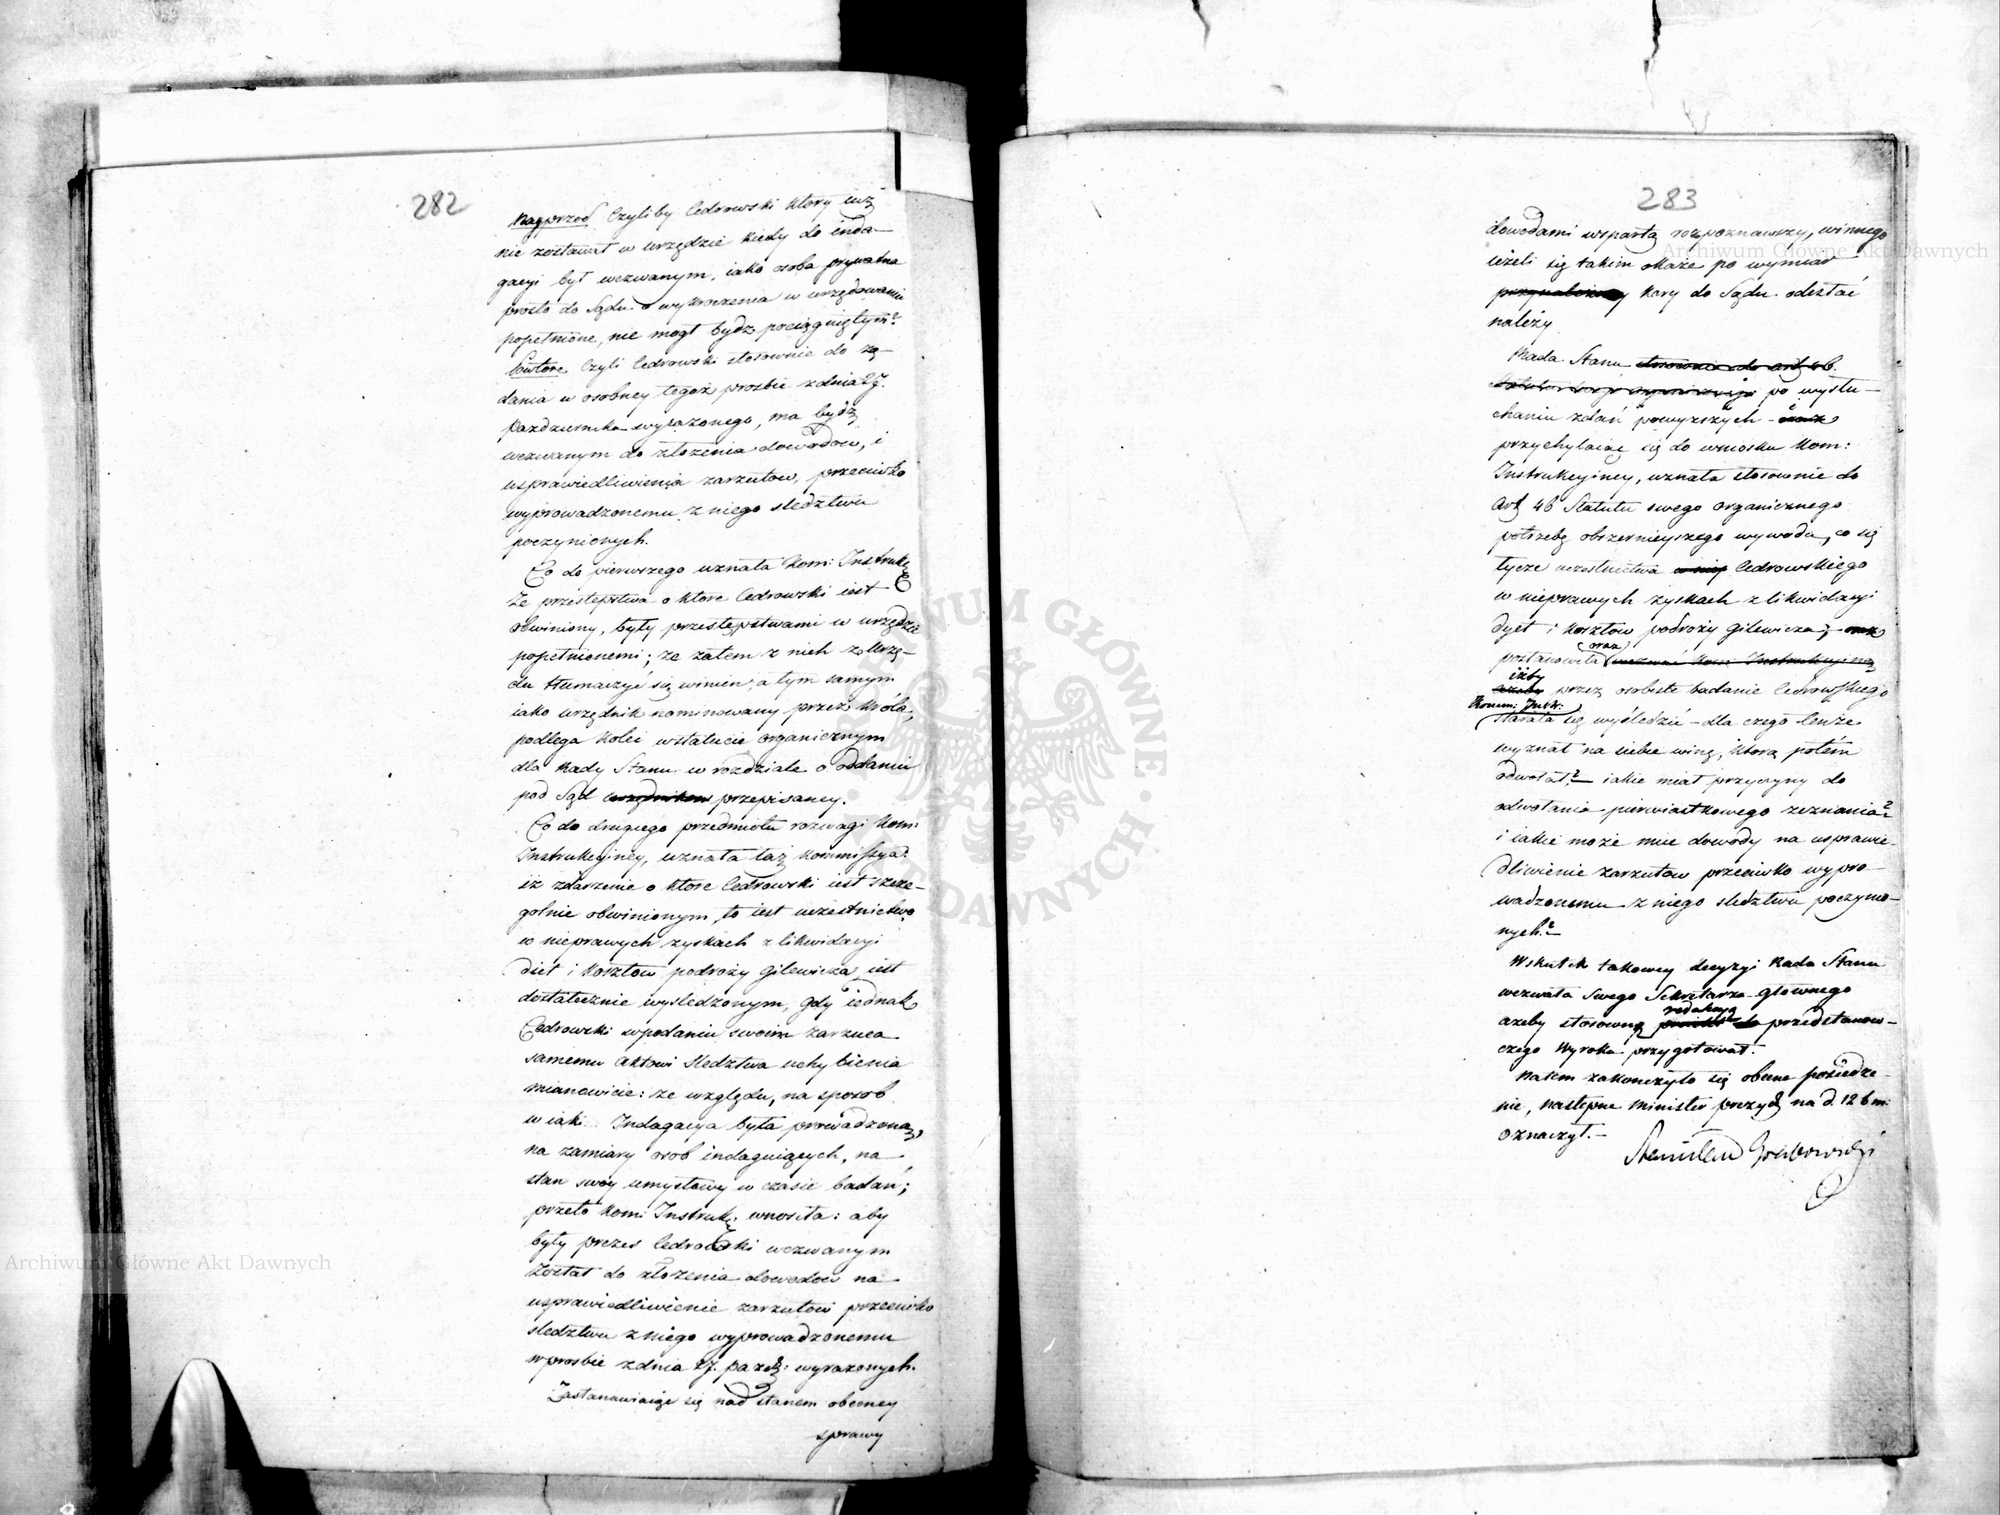 282
Nayprzod Czyliby Cedrowski ktory iuż
nie zostawał w urzędzie kiedy do inda-
gacyi był wezwanym, iako osoba prywatna
prosto do Sądu o wykroczenia w urzędowaniu
popełnione, nie mogł bydz pociągniętym?
Powtore Czyli Cedrowski stosownie do żą-
dania w osobney tegoż prozbie z dnia 27.
Pazdziernika wyrażonego, ma bydz
wezwanym do złożenia dowodow, i
usprawiedliwienia zarzutow, przeciwko
wyprowadzonemu z niego sledztwu
poczynionych.
Co do pierwszego uznała Kom: Instrukc
że przestępstwa o ktore Cedrowski iest
obwiniony, były przestępstwami w urzędzie
popełnionemi; że zatem z nich z Urzę-
du tłumaczyć się winien, a tym samym
iako urzędnik nominowany przez Króla,
podlega kolei w statucie organicznym
dla Rady Stanu w rozdziale o oddaniu
pod Sąd urzędnikow przepisaney.
Co do drugiego przedmiotu rozwagi Kom:
Instrukcyiney, uznała taż Kommissya:
iż zdarzenie o ktore Cedrowski iest szcze-
golnie obwinionym, to iest uczestnictwo
w nieprawych zyskach z likwidacyi
diet i kosztow podroży Gilewicza iest
dostatecznie wysledzonym, gdy iednak
Cedrowski w podaniu swoim zarzuca
samemu aktowi sledztwa uchybienia
mianowicie: ze względu, na sposob
w iaki Indagacya była prowadzona,
na zamiary osob indaguiących, na
stan swoy umysłowy w czasie badań;
przeto Kom: Instrukc: wnosiła: aby
były prezes Cedrowski wezwanym
został do złożenia dowodow na
usprawiedliwienie zarzutow przeciwko
sledztwu z niego wyprowadzonemu
w prosbie z dnia 27. pazdz: wyrażonych.
Zastanawiaiąc się nad stanem obecney
sprawy
283
dowodami wspartą rozpoznawszy, winnego
ieżeli się takim okaże po wymiar
kary do Sądu odesłać
należy
Rada Stanu stosownie do art 46.
po wysłu-
chaniu zdań powyższych - i
przychylaiąc się do wniosku Kom:
Instrukcyiney, uznała stosownie do
Art 46 Statutu swego organicznego
potrzebę obszernieyszego wywodu, co się
tycze uczestnictwa Cedrowskiego
w nieprawych zyskach z likwidacyi
dyet i kosztow podroży Gilewicza;
oraz
postanowiła wezwać Kom Instrukcyiną
iżby
ażeby przez osobiste badanie Cedrowskiego
Komm: Instr:
starała się wyśledzić - dla czego tenże
wyznał na siebie winę, ktorą potém
odwołał? iakie miał przyczyny do
odwołania pierwiastkowego zeznania?
i iakie może mieć dowody na usprawie-
dliwienie zarzutow przeciwko wypro-
wadzonemu z niego sledztwu poczynio-
nych?
Wskutek takowey decyzyi Rada Stanu
wezwała Swego Sekretarza głownego
redakcyą
ażeby stosowną przedstanow-
czego Wyroku przygotował.
Natem zakończyło się obecne posiedze-
nie, następne Minister prezyd na d. 12 b m:
oznaczył.-
Stanisław Grabowski
Archiwum Główne Akt Dawnych
Archiwum Główne Akt Dawnych
ARCHIWUM GŁÓWNE AKT DAWNYCH